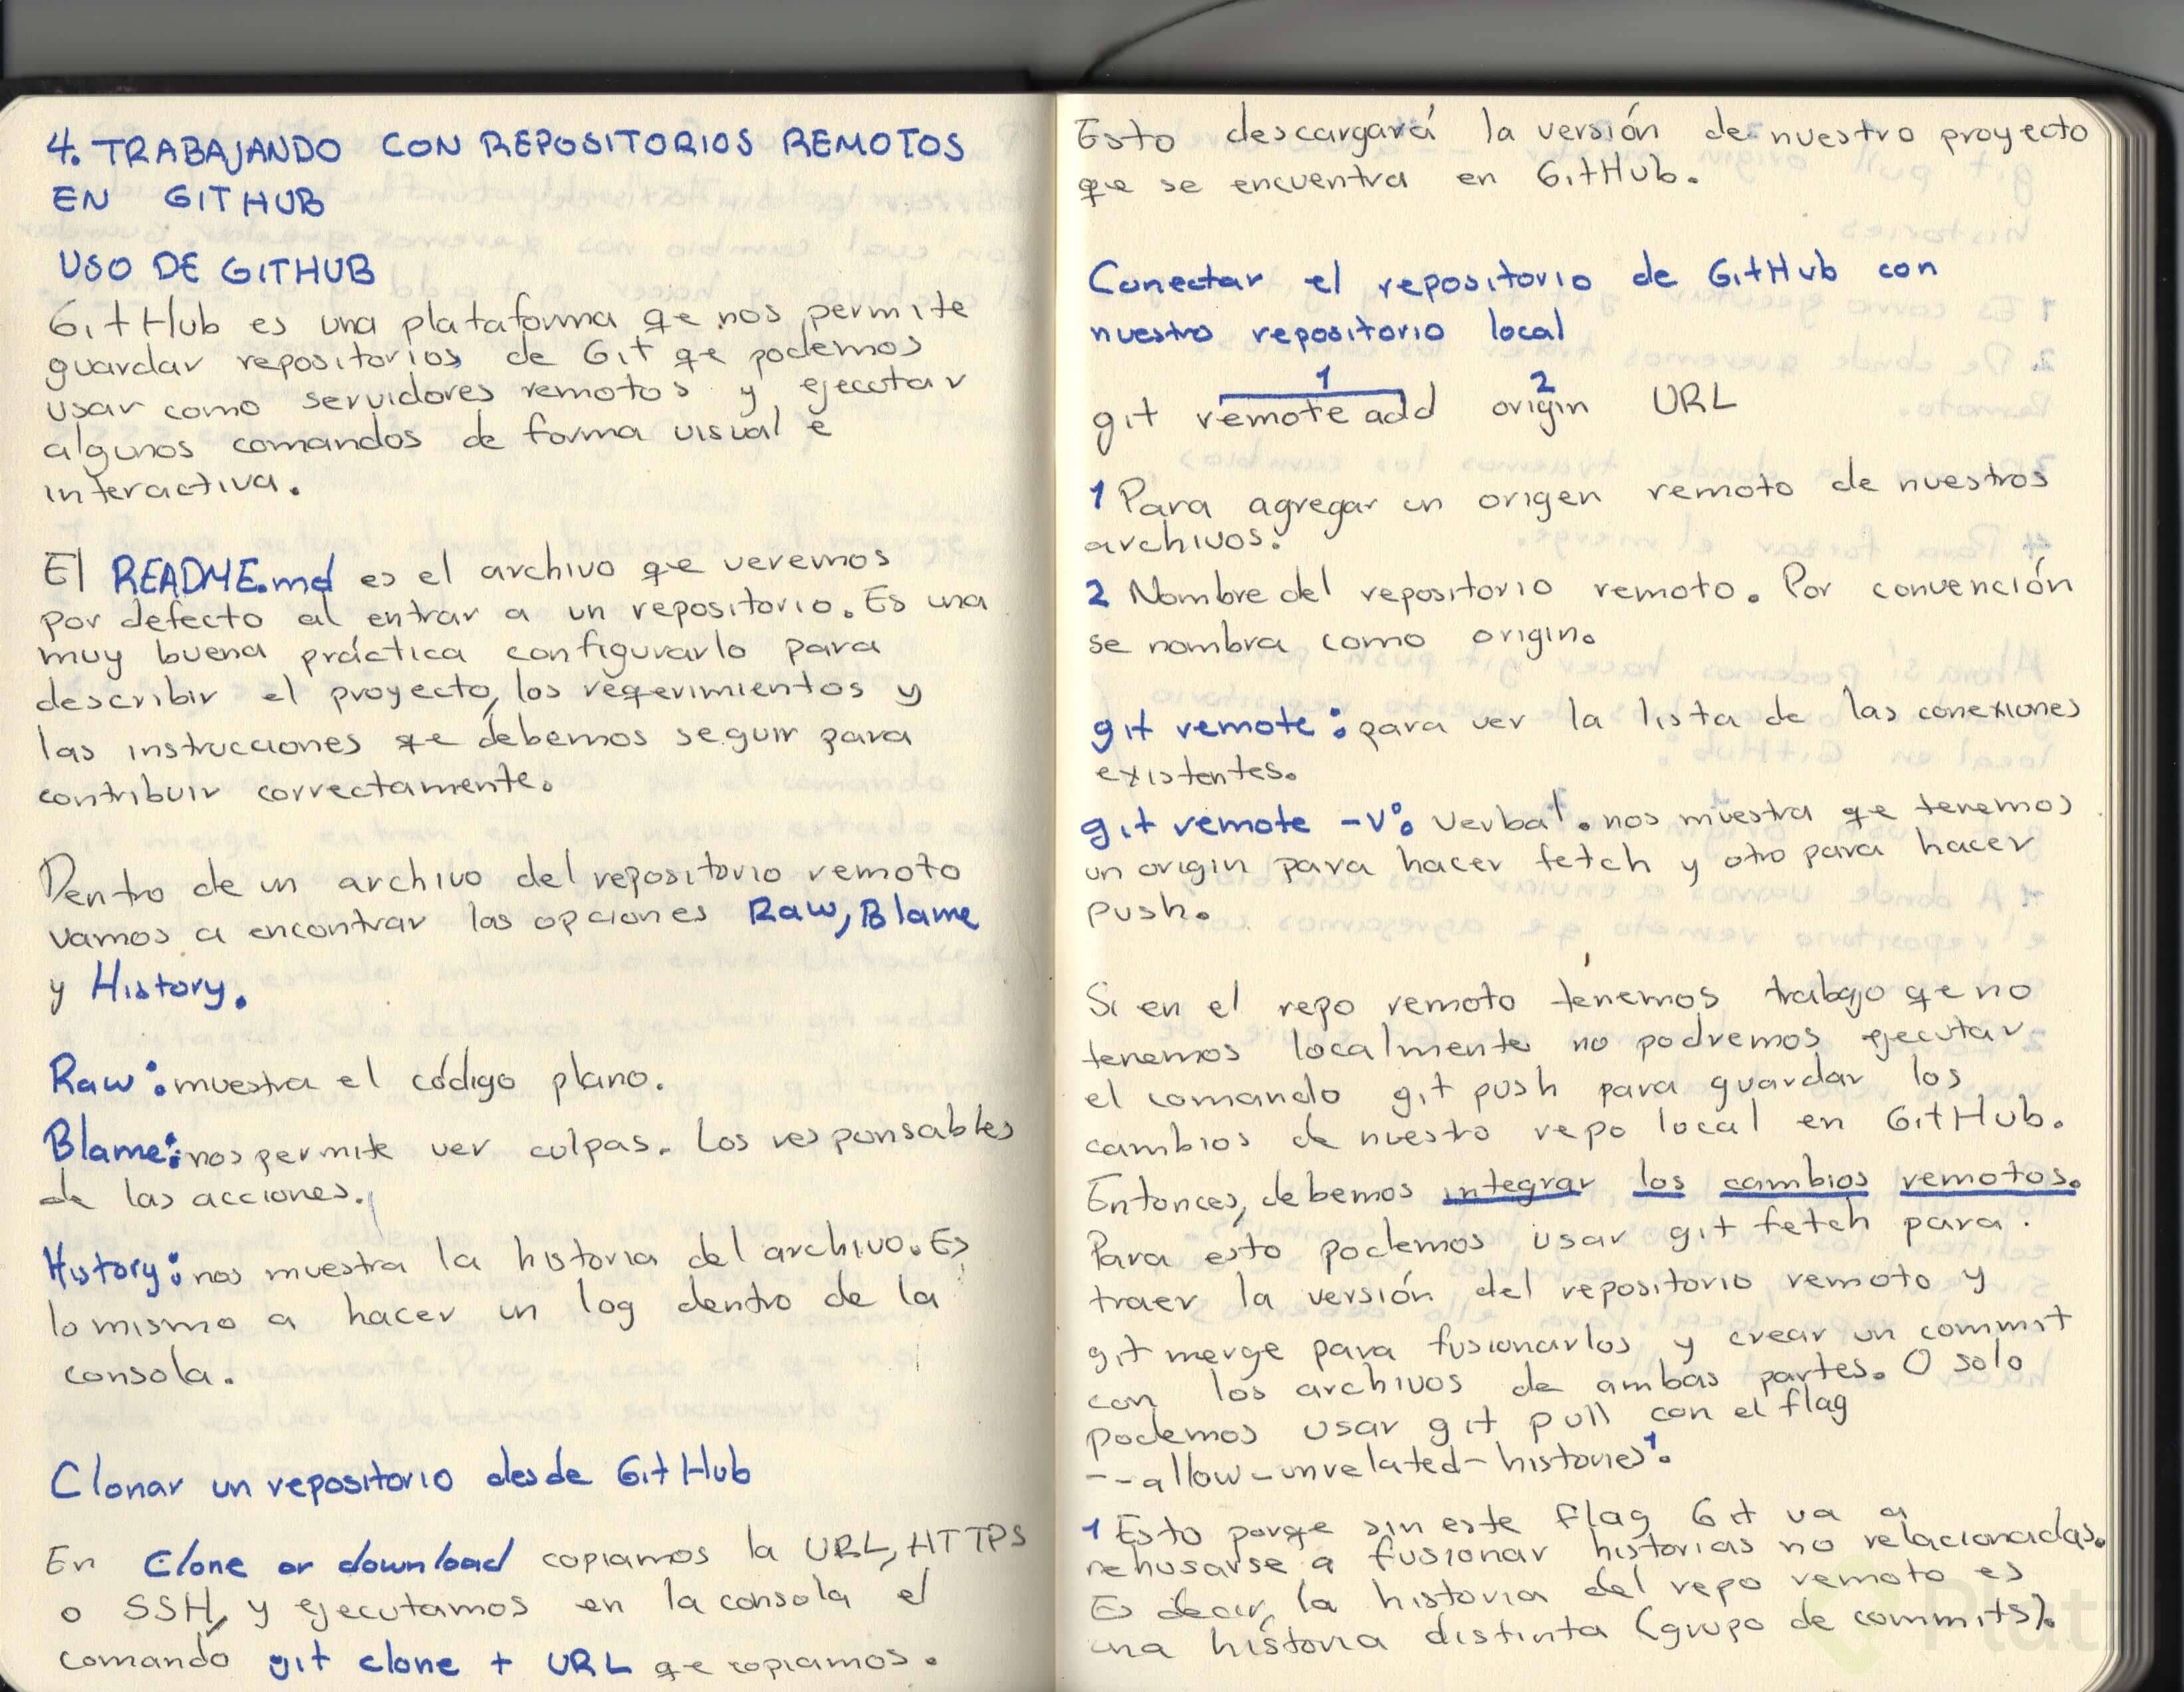 4. TRABAJANDO CON REPOSITORIOS REMOTOS
EN GITHUB
USO DE GITHUB
GitHub es una plataforma qe nos permite
guardar repositorios de Git qe podemos
usar como servidores remotos y ejecutar
algunos comandos de forma visual e
interactiva.
El README.md es el archivo qe veremos
por defecto al entrar a un repositorio. Es una
muy buena práctica configurarlo para
describir el proyecto, los reqerimientos y
las instrucciones qe debemos seguir para
contribuir correctamente.
Dentro de un archivo del repositorio remoto
vamos a encontrar las opciones Raw, Blame
y History.
Raw: muestra el código plano.
Blame: nos permite ver culpas. Los responsables
de las acciones.
History: nos muestra la historia del archivo. Es
lo mismo a hacer un log dentro de la
consola.
Clonar un repositorio desde GitHub
En Clone or download copiamos la URL, HTTPS
o SSH, y ejecutamos en la consola el
comando git clone + URL qe copiamos.
Esto descargará la versión de nuestro proyecto
qe se encuentra en GitHub.
Conectar el repositorio de GitHub con
nuestro repositorio local
1 2
git remote add origin URL
1 Para agregar un origen remoto de nuestros
archivos.
2 Nombre del repositorio remoto. Por convención
se nombra como origin.
git remote: para ver la lista de las conexiones
existentes.
git remote -v: verbal. nos muestra qe tenemos
un origin para hacer fetch y otro para hacer
push.
Si en el repo remoto tenemos trabajo qe no
tenemos localmente no podremos ejecutar
el comando git push para guardar los
cambios de nuestro repo local en GitHub.
Entonces, debemos integrar los cambios remotos.
Para esto podemos usar git fetch para
traer la versión del repositorio remoto y
git merge para fusionarlos y crear un commit
con los archivos de ambas partes. O solo
podemos usar git pull con el flag
--allow-unrelated-histories¹.
1 Esto porqe sin este flag Git va a
rehusarse a fusionar historias no relacionadas.
Es decir, la historia del repo remoto es
una historia distinta (grupo de commits).
Platzi